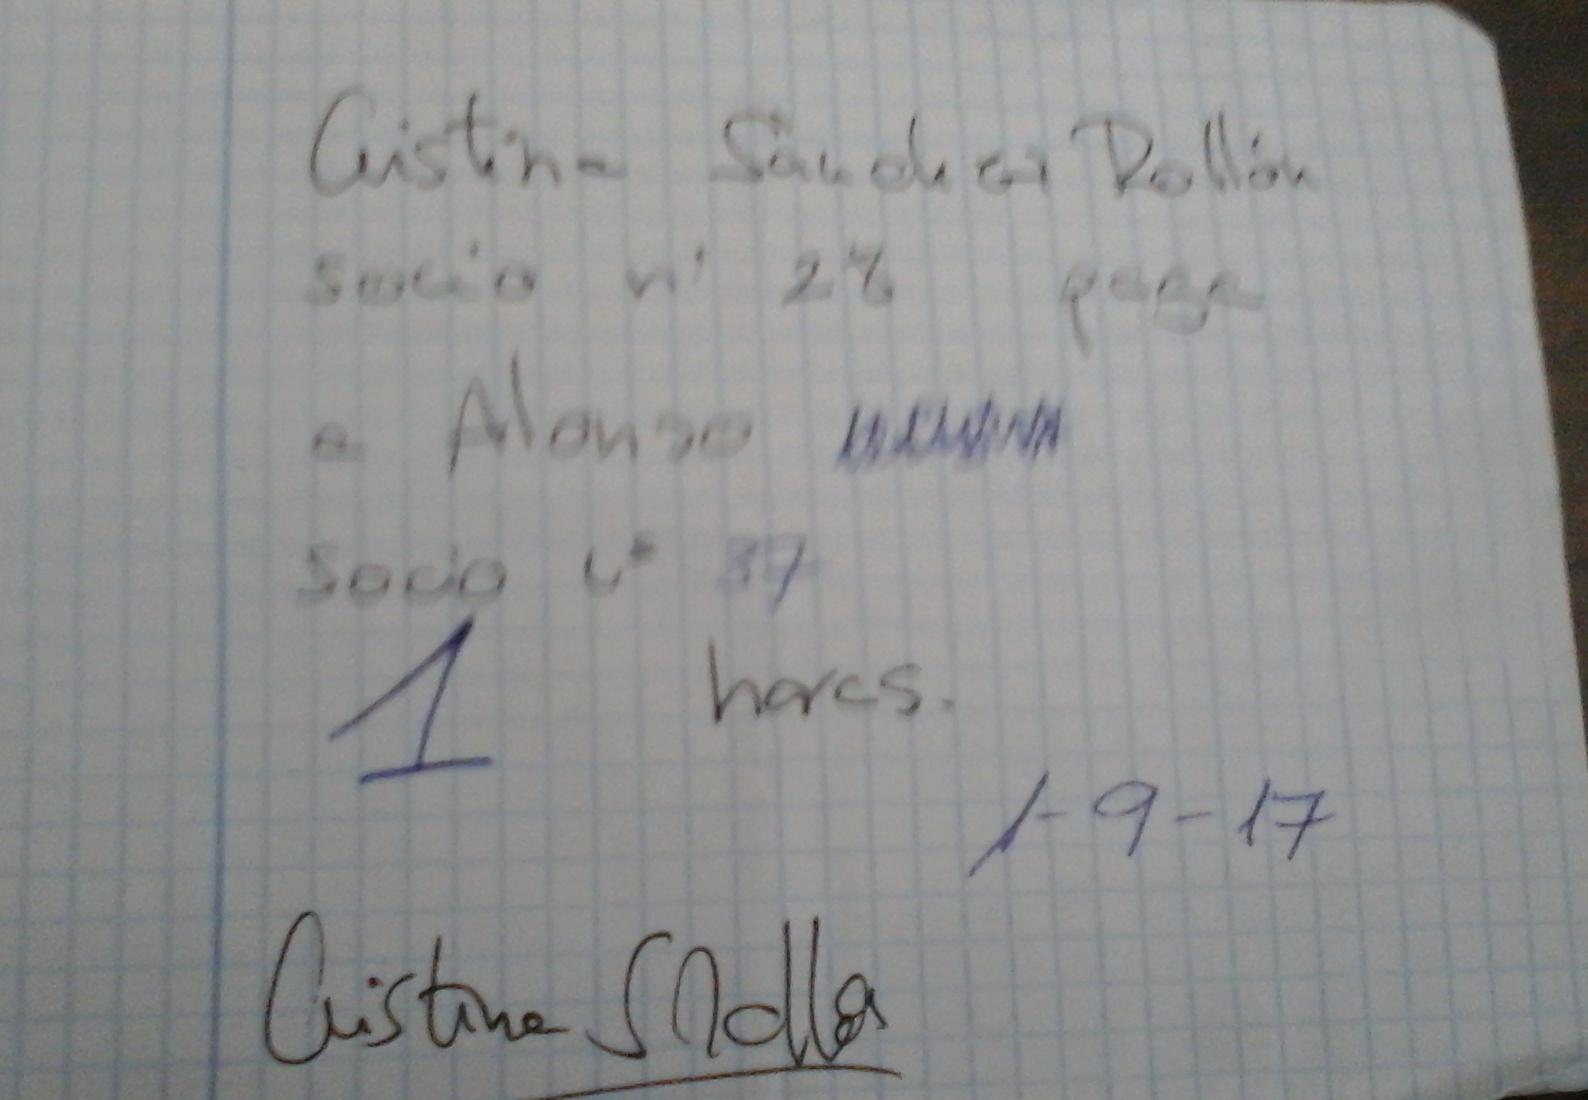 Cristina Sánchez Rollán
socio nº 28 paga
a Alonso
socio nº 37
1 horas.
1-9-17
Cristina S Rollán